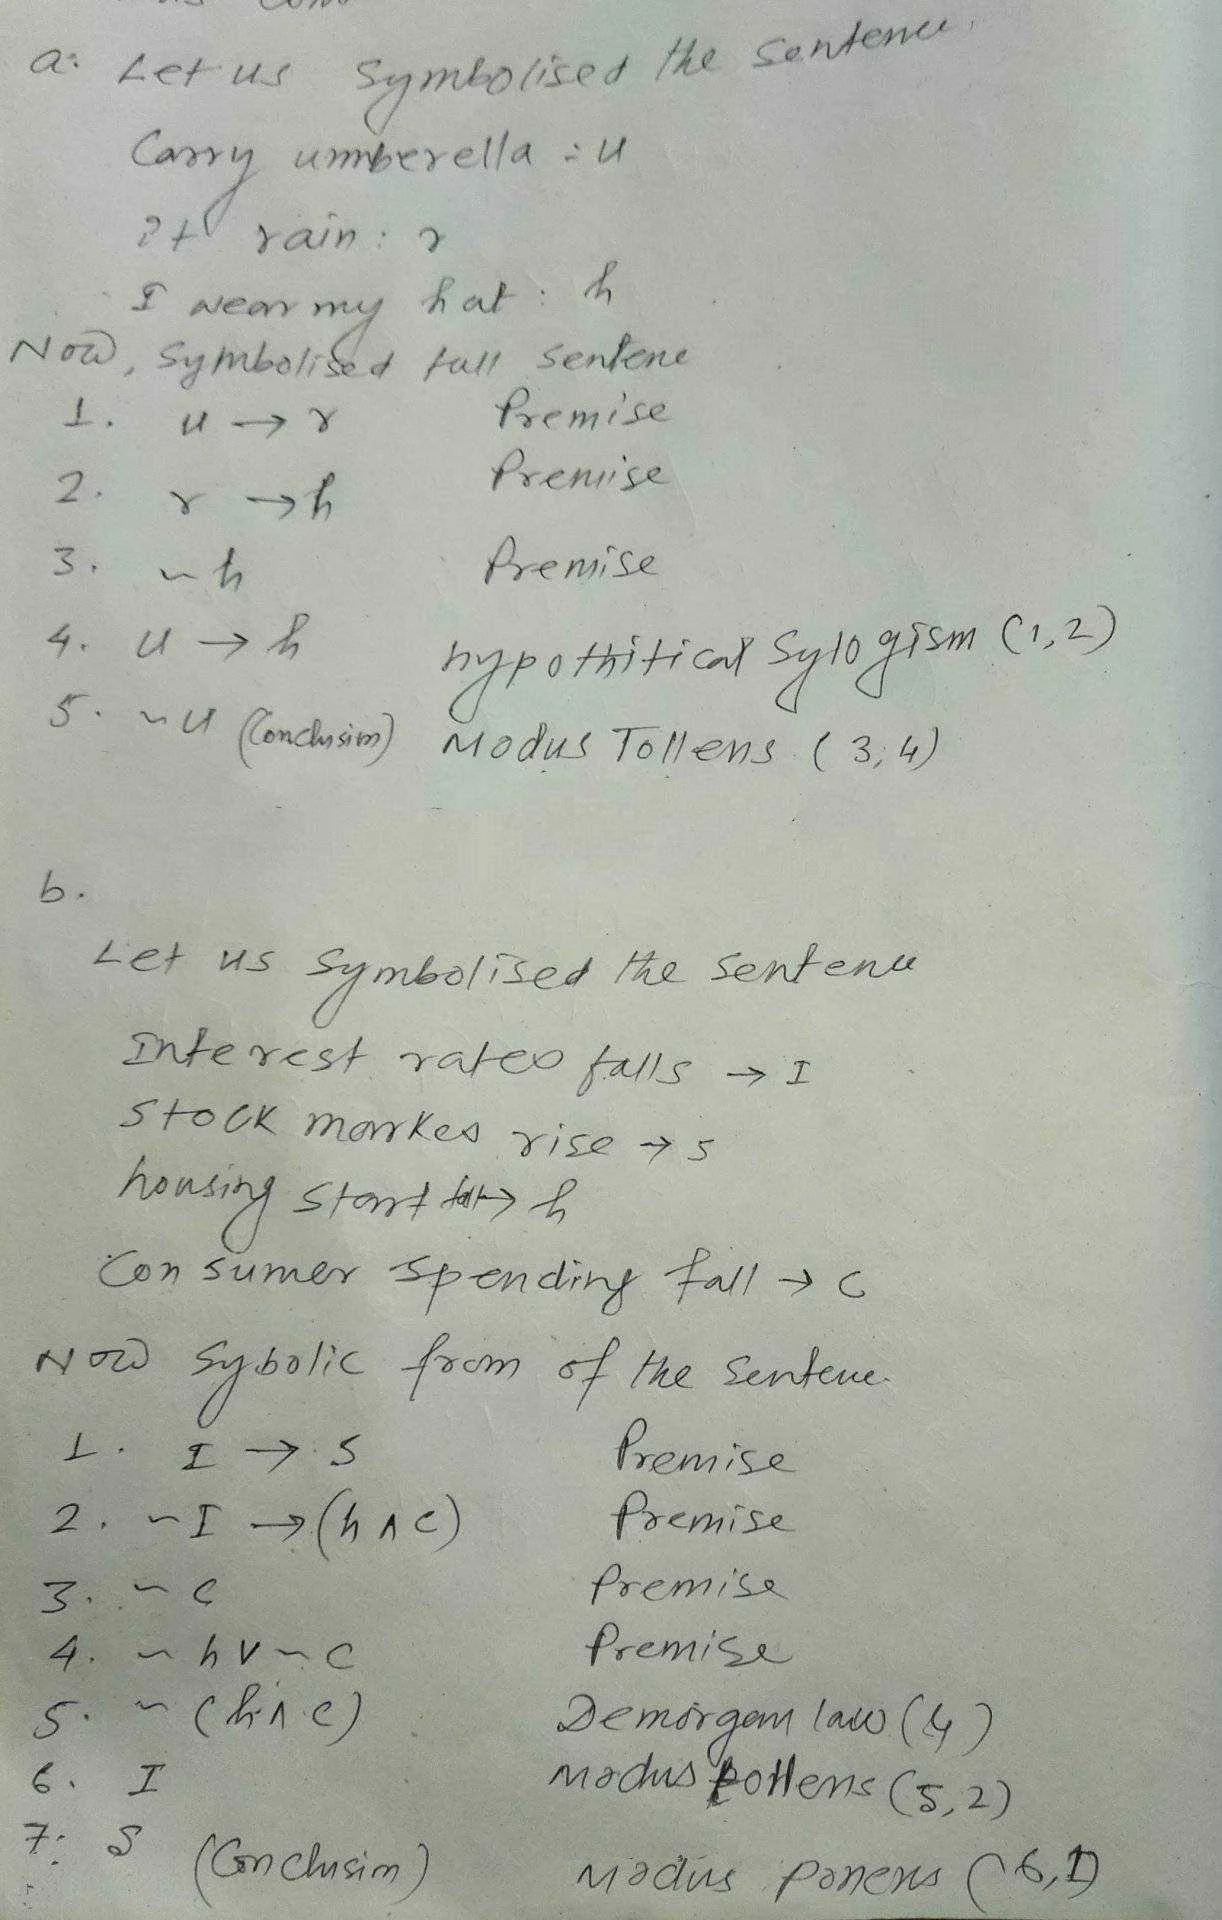 a: Let us symbolised the sentence.
Carry umberella : u
It rain : r
I wear my hat : h
Now, symbolised full sentene
1. u → r Premise
2. r → h Premise
3. ~h Premise
4. u → h hypothitical Sylogism (1,2)
5. ~u (Conclusion) Modus Tollens (3,4)
b.
Let us symbolised the sentence
Interest rates falls → I
Stock markes rise → s
housing start → h
Consumer spending fall → c
Now Sybolic from of the sentence.
1. I → S Premise
2. ~I → (h ∧ c) Premise
3. ~c Premise
4. ~h ∨ ~c Premise
5. ~(h ∧ c) Demorgan law (4)
6. I Modus tollens (5,2)
7: S (Conclusion) Modus ponens (6,1)